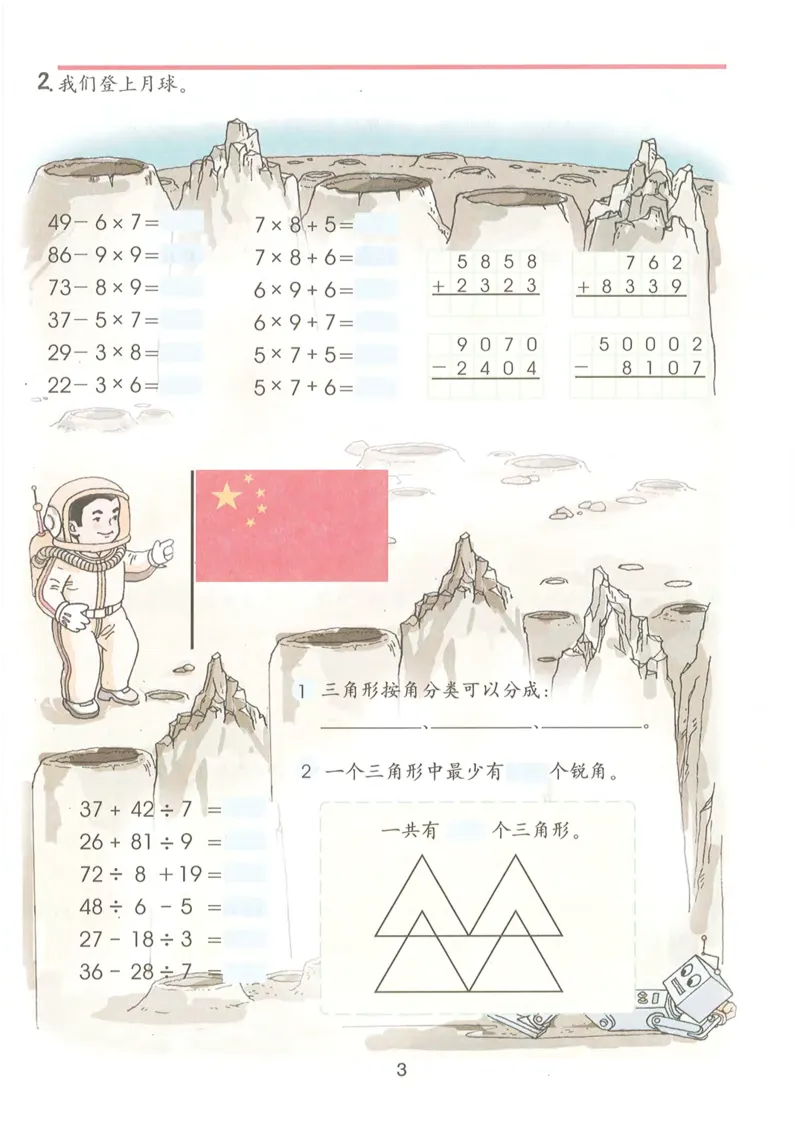 2. 我们登上月球。
49－6×7＝
86－9×9＝
73－8×9＝
37－5×7＝
29－3×8＝
22－3×6＝
7×8＋5＝
7×8＋6＝
6×9＋6＝
6×9＋7＝
5×7＋5＝
5×7＋6＝
5858
＋2323
762
＋8339
9070
－2404
50002
－8107
1 三角形按角分类可以分成：
、、。
2 一个三角形中最少有 个锐角。
一共有 个三角形。
37＋42÷7＝
26＋81÷9＝
72÷8＋19＝
48÷6－5＝
27－18÷3＝
36－28÷7＝
3